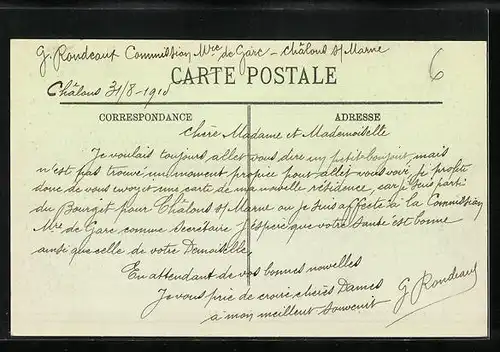 G. Rondeau Commission Mre de Gare - Châlons s/ Marne
6
CARTE POSTALE
Châlons 31/8-191
CORRESPONDANCE
ADRESSE
Chère Madame et Mademoiselle
Je voulais toujours aller vous dire un petit bonjour, mais
n'est pas trouvé un moment propice pour aller vous voir. Je profite
donc de vous envoyer une carte de ma nouvelle résidence, car je suis parti
du Bourget pour Châlons s/ Marne ou je suis affecté à la Commission
Mre de Gare comme Secrétaire j'espère que votre santé est bonne
ainsi que celle de votre Demoiselle,
En attendant de vos bonnes nouvelles
Je vous prie de croire chères Dames
à mon meilleur souvenir
G Rondeau